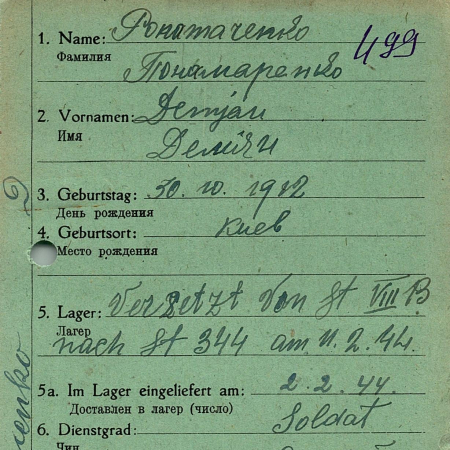 1. Name: Ponamarenko 499
Фамилия
Понамаренко
2. Vornamen: Demjan
Имя
Демян
3. Geburtstag: 30. 10. 1912
День рождения
4. Geburtsort: Киев
Место рождения
5. Lager: Versetzt von St VIII B.
Лагер
nach St 344 am 11. 2. 44.
5a. Im Lager eingeliefert am: 2. 2. 44.
Доставлен в лагер (число)
6. Dienstgrad: Soldat
Чин